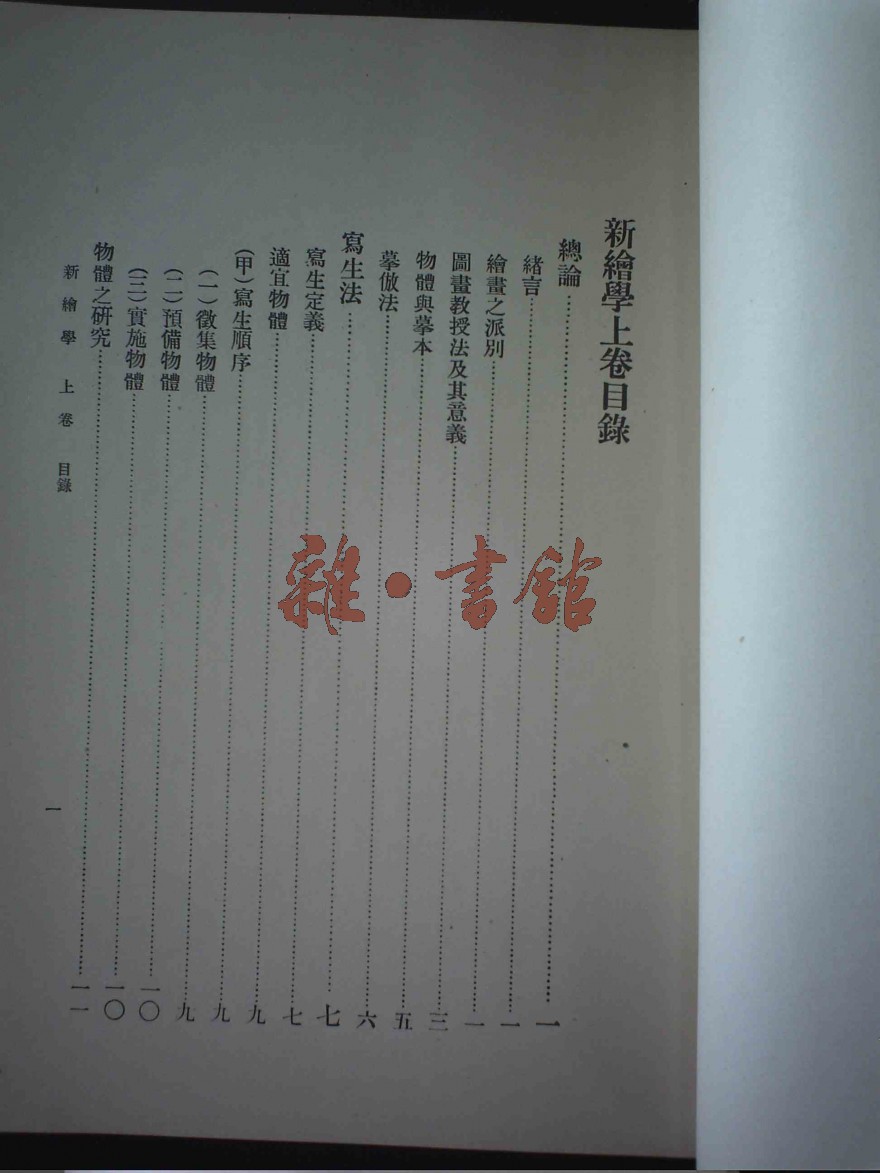 新繪學上卷目錄
總論……一
緒言……一
繪畫之派別……一
圖畫教授法及其意義……三
物體與摹本……五
摹倣法……六
寫生法……七
寫生定義……七
適宜物體……九
(甲)寫生順序……九
(一)徵集物體……九
(二)預備物體……一〇
(三)實施物體……一〇
物體之研究……一一
新繪學 上卷 目錄
一
雜·書館